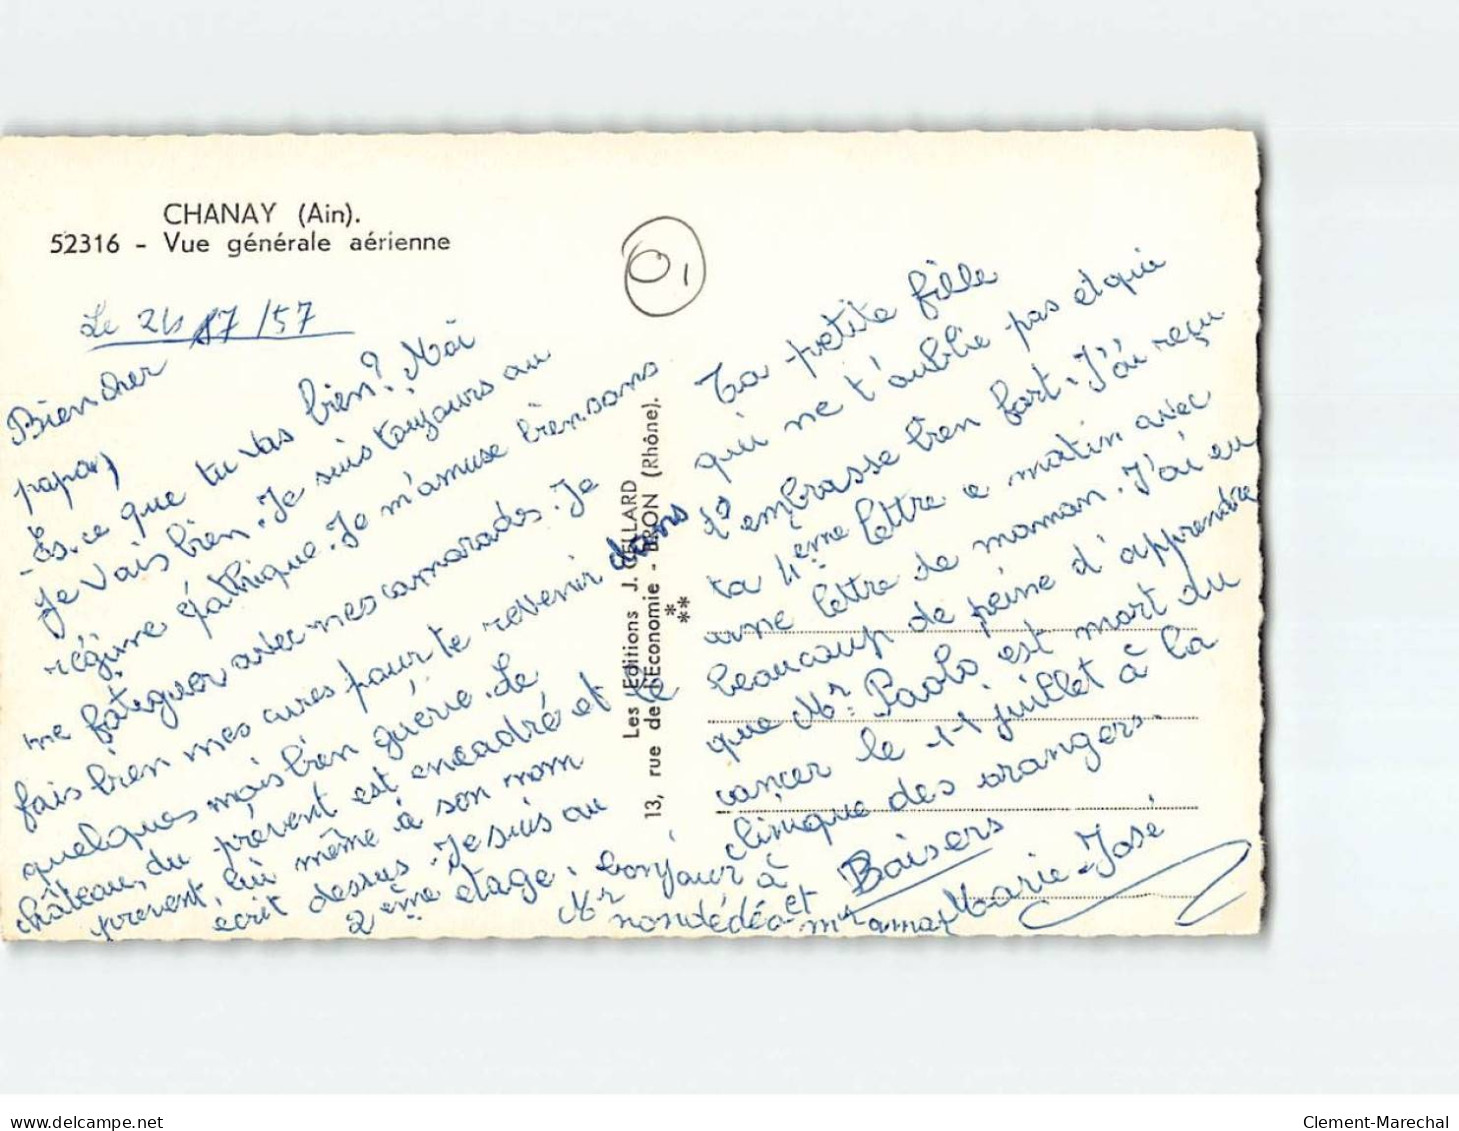 CHANAY (Ain).
52316 - Vue générale aérienne
Le 24 /7 /57
Bien cher
papa,
- Es-ce que tu vas bien? Moi
je vais bien. Je suis toujours au
régime
Je m'amuse bien sans
me fatiguer avec mes camarades. Je
fais bien mes cures pour te revenir dans
quelques mois bien guérie. Le
château, du prévent est encadré et le
prevent, lui même à son nom
écrit dessus. Je suis au
2ème etage. bonjour à
Mr nondédéo et mr amar
Les Editions J. CELLARD
13, rue de l'Economie - BRON (Rhône).
01
Ta petite fille
qui ne t'oublie pas et qui
t'embrasse bien fort. J'ai reçu
ta 4ème lettre ce matin avec
une lettre de maman. J'ai eu
beaucoup de peine d'apprendre
que Mr. Paolo est mort du
cancer le 11 juillet à la
clinique des orangers.
Baisers
Marie-José
delcampe.net
Clement-Marechal